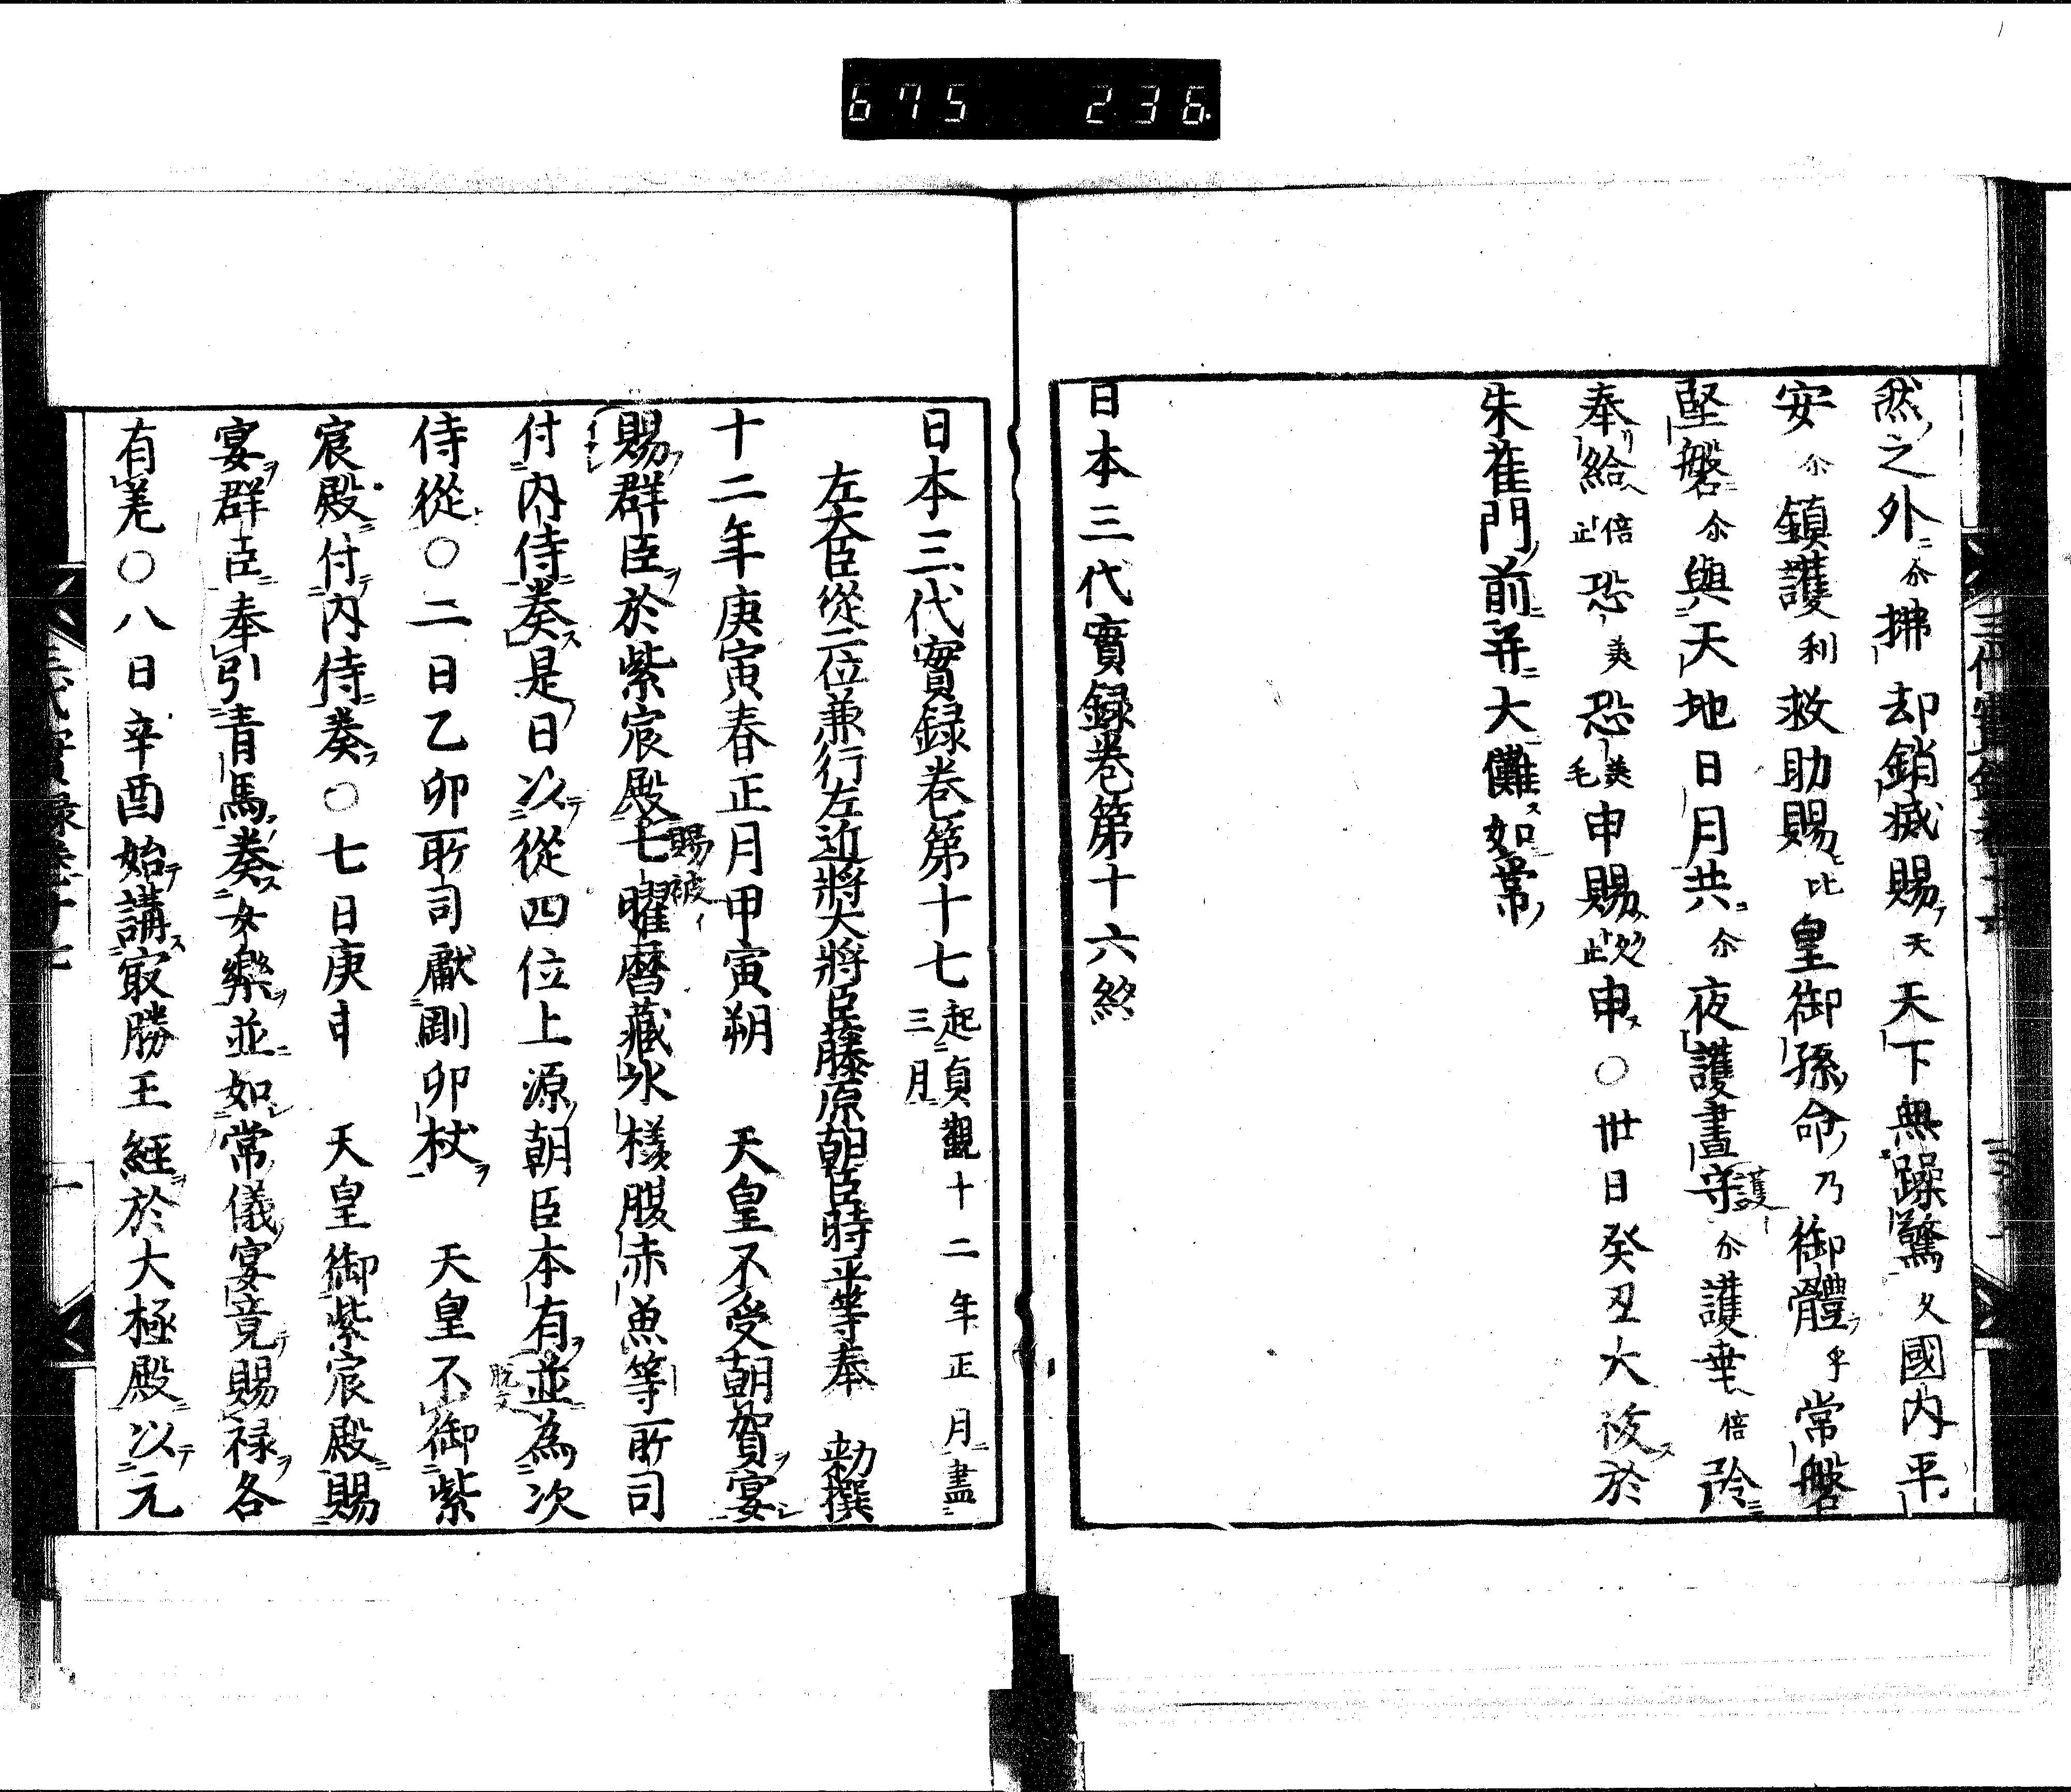 675 236
然之外尓拂却銷滅賜天天下無躁驚久國内平
安尓鎮護利救助賜比皇御孫命乃御體乎常磐
堅磐尓與天地日月共尓夜護晝守尓護幸倍矜
奉給倍止恐美恐美毛申賜久止申○丗日癸丑大祓於
朱雀門前并大儺如常
日本三代實録巻第十六終
日本三代實録巻第十七起貞觀十二年正月盡三月
左大臣從二位兼行左近將大將臣藤原朝臣時平等奉 勅撰
十二年庚寅春正月甲寅朔 天皇不受朝賀宴
賜群臣於紫宸殿七曜暦藏氷樣腹赤魚等所司
付内侍奏是日以從四位上源朝臣本有並為次
侍從○二日乙卯所司獻剛卯杖 天皇不御紫
宸殿付内侍奏○七日庚申 天皇御紫宸殿賜
宴群臣奉引青馬奏女樂並如常儀宴竟賜禄各
有差○八日辛酉始講寂勝王經於大極殿以元